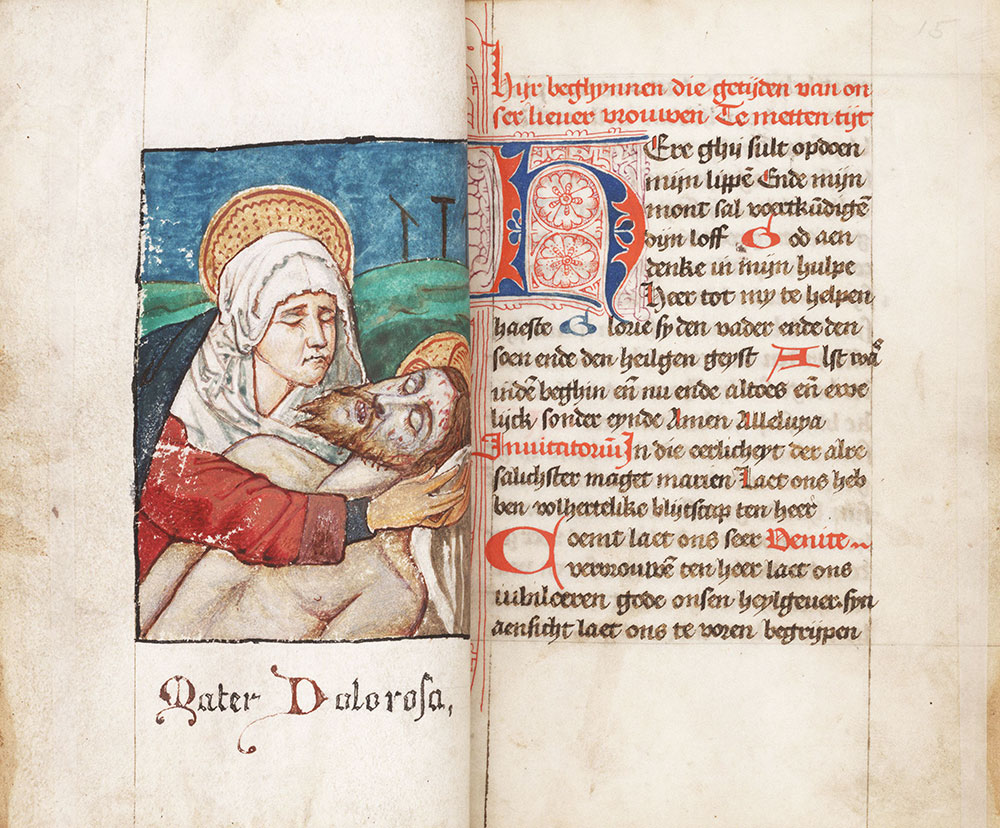 Mater Dolorosa,
15
Hijr beghynnen die getijden van on
ser lieuer vrouwen Te metten tijt
HEre ghij sult opdoen
mijn lippẽ Ende mijn
mont sal voertkũdigẽ
dijn loff God aen
denke in mijn hulpe
Heer tot my te helpen
haeste Glorie sy den vader ende den
soen ende den heilgen geyst Alst wa͂
inden beghin en̄ nu ende altoes en̄ ewe
lijck sonder eynde Amen Alleluya
Inuitatoriũ In die eerlicheyt der alre
salichster maget marien Laet ons heb
ben volhertelike blijtscap ten heer
Coemt laet ons seer Venite
vervrouwẽ ten heer laet ons
iubileeren gode onsen heylgeuer. syn
aensicht laet ons te voren begrijpen